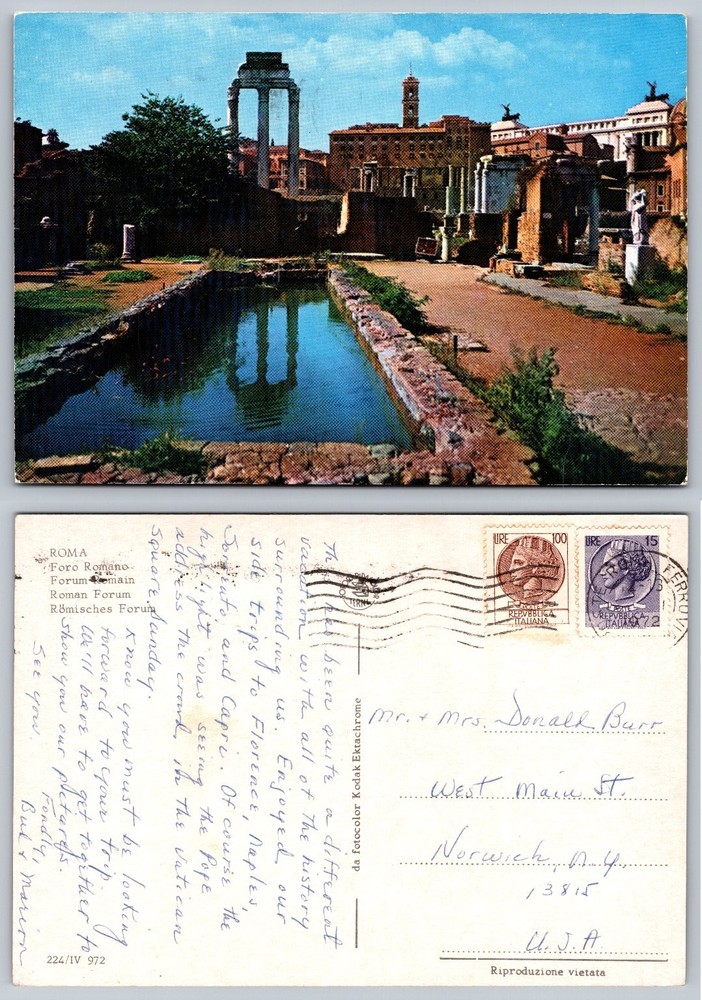 ROMA
Foro Romano
Forum Romain
Roman Forum
Römisches Forum
This has been quite a different
vacation with all of the history
surrounding us. Enjoyed our
side trips to Florence, Naples,
Sorrento and Capri. Of course the
high light was seeing the Pope
address the crowd in the Vatican
Square Sunday.
Know you must be looking
forward to your trip.
We'll have to get together to
show you our pictures.
See you.
Fondly,
Bud + Marion
da fotocolor Kodak Ektachrome
LIRE 100
REPVBBLICA
ITALIANA
LIRE 15
POSTE
REPVBBLICA
ITALIANA
FERROVIA
Mr. + Mrs. Donald Burr
West Main St.
Norwich, N.Y.
13815
U.S.A.
224/IV 972
Riproduzione vietata